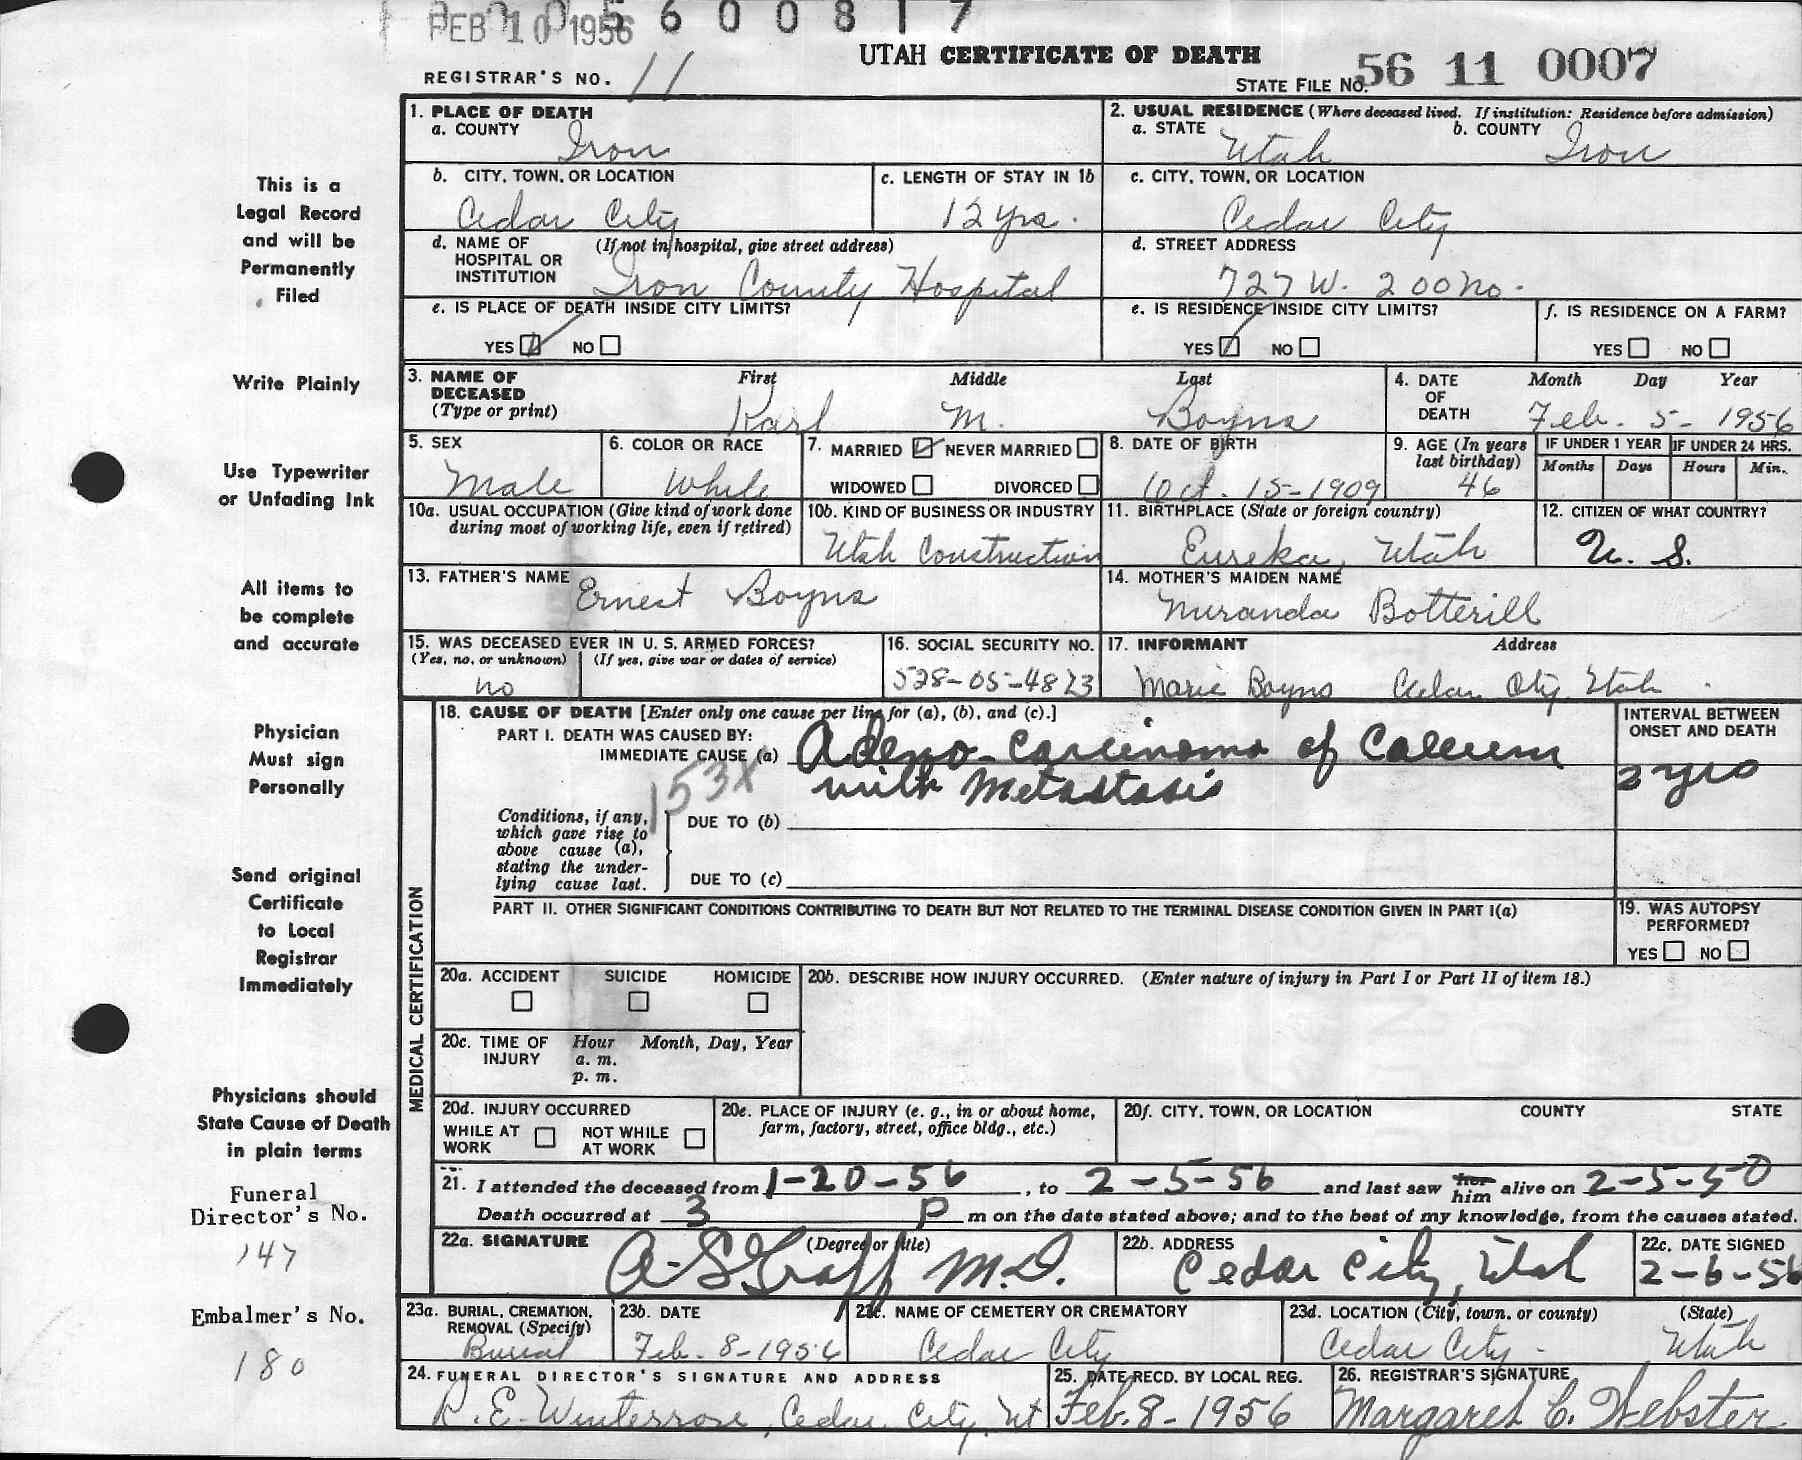 5 6 0 0 8 1 7
FEB 10 1956
UTAH CERTIFICATE OF DEATH
REGISTRAR'S NO. 11
STATE FILE NO. 56 11 0007
This is a
Legal Record
and will be
Permanently
Filed
Write Plainly
Use Typewriter
or Unfading Ink
All items to
be complete
and accurate
Physician
Must sign
Personally
Send original
Certificate
to Local
Registrar
Immediately
Physicians should
State Cause of Death
in plain terms
Funeral
Director's No.
147
Embalmer's No.
180
1. PLACE OF DEATH
a. COUNTY Iron
2. USUAL RESIDENCE (Where deceased lived. If institution: Residence before admission)
a. STATE Utah b. COUNTY Iron
b. CITY, TOWN, OR LOCATION Cedar City
c. LENGTH OF STAY IN 1b 12 yrs.
c. CITY, TOWN, OR LOCATION Cedar City
d. NAME OF HOSPITAL OR INSTITUTION (If not in hospital, give street address) Iron County Hospital
d. STREET ADDRESS 727 W. 200 No.
e. IS PLACE OF DEATH INSIDE CITY LIMITS?
YES NO
e. IS RESIDENCE INSIDE CITY LIMITS?
YES NO
f. IS RESIDENCE ON A FARM?
YES NO
3. NAME OF DECEASED (Type or print) First Middle Last
Karl M. Boyns
4. DATE OF DEATH Month Day Year
Feb. 5- 1956
5. SEX Male
6. COLOR OR RACE White
7. MARRIED NEVER MARRIED
WIDOWED DIVORCED
8. DATE OF BIRTH Oct. 15-1909
9. AGE (In years last birthday) 46
IF UNDER 1 YEAR IF UNDER 24 HRS.
Months Days Hours Min.
10a. USUAL OCCUPATION (Give kind of work done during most of working life, even if retired)
10b. KIND OF BUSINESS OR INDUSTRY Utah Construction
11. BIRTHPLACE (State or foreign country) Eureka, Utah
12. CITIZEN OF WHAT COUNTRY? U. S.
13. FATHER'S NAME Ernest Boyns
14. MOTHER'S MAIDEN NAME Miranda Botterill
15. WAS DECEASED EVER IN U. S. ARMED FORCES?
(Yes, no, or unknown) (If yes, give war or dates of service)
no
16. SOCIAL SECURITY NO. 528-05-4823
17. INFORMANT Address
Marie Boyns Cedar City Utah
MEDICAL CERTIFICATION
18. CAUSE OF DEATH [Enter only one cause per line for (a), (b), and (c).]
PART I. DEATH WAS CAUSED BY:
IMMEDIATE CAUSE (a) Adeno-Carcinoma of Caecum
with Metastasis
153X
INTERVAL BETWEEN ONSET AND DEATH
2 yrs
Conditions, if any, which gave rise to above cause (a), stating the underlying cause last.
DUE TO (b)
DUE TO (c)
PART II. OTHER SIGNIFICANT CONDITIONS CONTRIBUTING TO DEATH BUT NOT RELATED TO THE TERMINAL DISEASE CONDITION GIVEN IN PART I(a)
19. WAS AUTOPSY PERFORMED?
YES NO
20a. ACCIDENT SUICIDE HOMICIDE
20b. DESCRIBE HOW INJURY OCCURRED. (Enter nature of injury in Part I or Part II of item 18.)
20c. TIME OF INJURY Hour a. m. p. m. Month, Day, Year
20d. INJURY OCCURRED
WHILE AT WORK NOT WHILE AT WORK
20e. PLACE OF INJURY (e. g., in or about home, farm, factory, street, office bldg., etc.)
20f. CITY, TOWN, OR LOCATION COUNTY STATE
21. I attended the deceased from 1-20-56, to 2-5-56 and last saw her him alive on 2-5-50
Death occurred at 3 P m on the date stated above; and to the best of my knowledge, from the causes stated.
22a. SIGNATURE (Degree or title) M.D.
22b. ADDRESS Cedar City, Utah
22c. DATE SIGNED 2-6-56
23a. BURIAL, CREMATION, REMOVAL (Specify) Burial
23b. DATE Feb. 8-1956
23c. NAME OF CEMETERY OR CREMATORY Cedar City
23d. LOCATION (City, town, or county) (State)
Cedar City - Utah
24. FUNERAL DIRECTOR'S SIGNATURE AND ADDRESS
E. Winterrose, Cedar City, Ut
25. DATE RECD. BY LOCAL REG.
Feb. 8-1956
26. REGISTRAR'S SIGNATURE
Margaret C. Webster